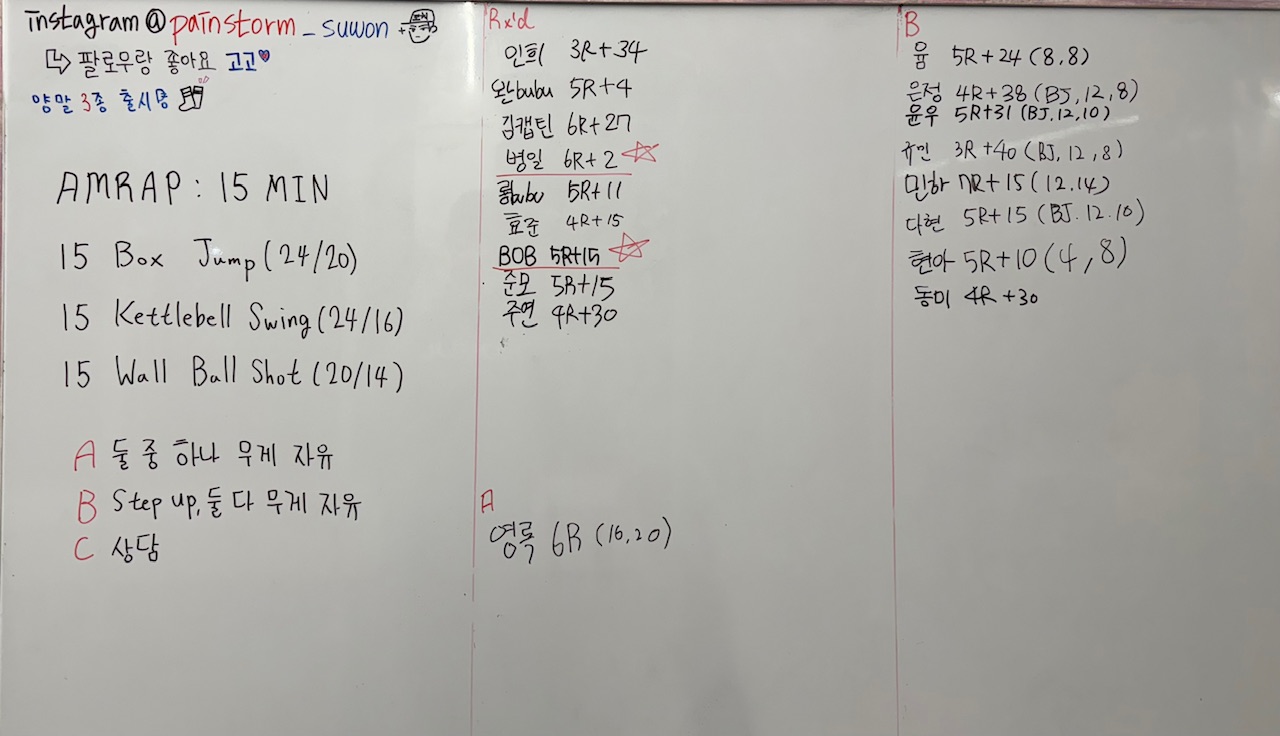 instagram@painstorm_suwon
팔로우랑 좋아요 고고
양말 3종 출시중
AMRAP : 15 MIN
15 Box Jump (24/20)
15 Kettlebell Swing (24/16)
15 Wall Ball Shot (20/14)
A 둘 중 하나 무게 자유
B Step up, 둘 다 무게 자유
C 상담
Rx'd
인희 3R+34
완bubu 5R+4
김캡틴 6R+27
병일 6R+2
룡bubu 5R+11
효준 4R+15
BOB 5R+15
준모 5R+15
주연 4R+30
A
영록 6R (16,20)
B
윰 5R+24 (8,8)
은정 4R+38 (BJ, 12, 8)
윤우 5R+31 (BJ, 12, 10)
규민 3R+40 (BJ, 12, 8)
민하 7R+15 (12.14)
다현 5R+15 (BJ. 12. 10)
현아 5R+10 (4, 8)
동미 4R+30